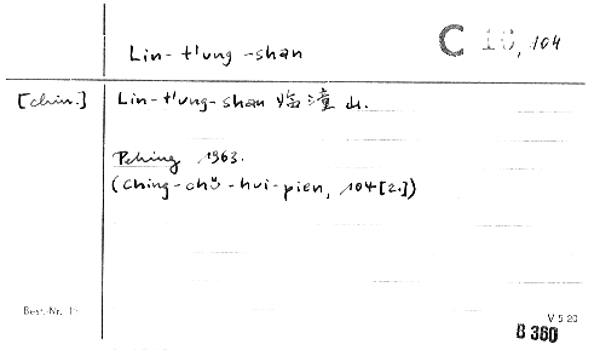 Lin-t'ung-shan
C 16, 104
[chin.]
Lin-t'ung-shan 临潼山.
Peking 1963.
(Ching-chü-hui-pien, 104[2.])
Best.-Nr.
V 5 20
B 360